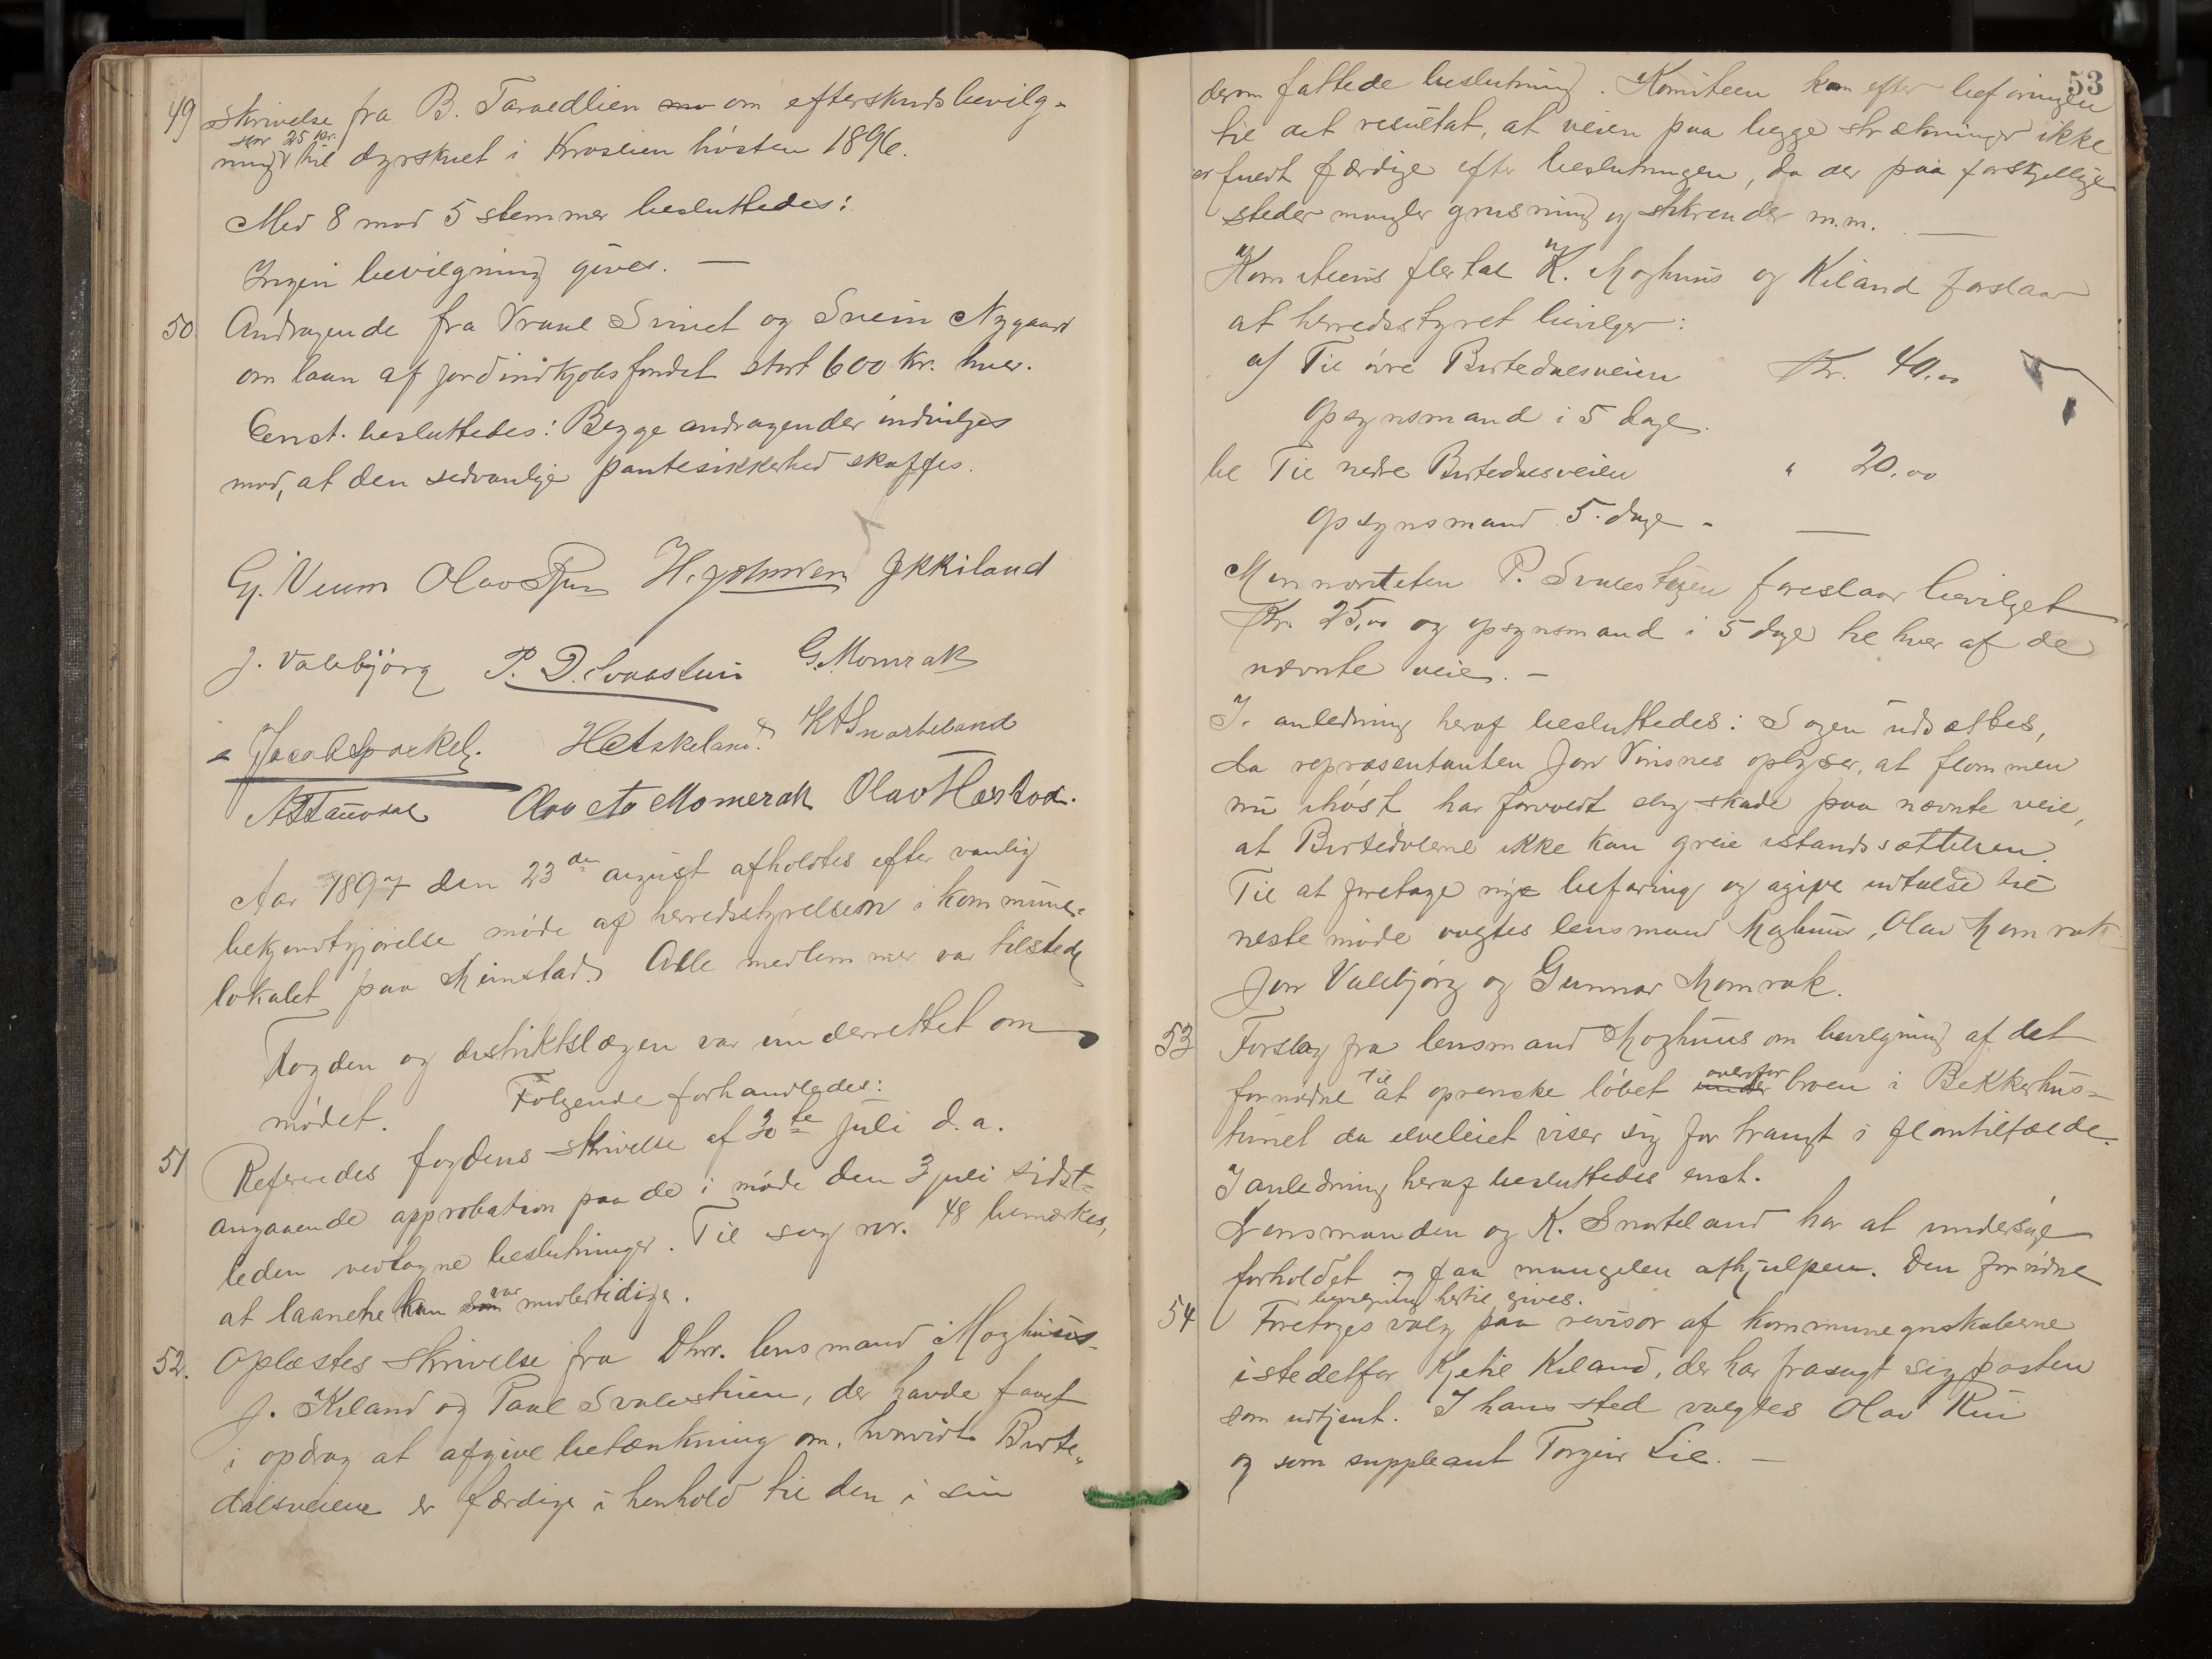 49 Skrivelse fra B. Taraedlien om efterskudsbevilg-
stor 25 kr.
ning til dyrskuet i Kroslien høsten 1896.
Med 8 mod 5 stemmer besluttedes:
Ingen bevilgning gives. —
50. Andragende fra Vraal Svinet og Svein Nygaard
om laan af jordindkjøbsfondet stort 600 kr. hver.
Enst. besluttedes: Begge andragender indvilges
mod, at den sedvanlige pantesikkerhed skaffes.
G. Veum Olav H. Johnsen J K Kiland
J. Valebjørg P. D. Svaastuin G. Momrak
Jacob H K A Snarteland
Olav A Momerak Olav
Aar 1897 den 23de august afholdtes efter vanlig
bekjendtgjørelse møde af herredsstyrelsen i kommune-
lokalet paa Heimstad. Alle medlemmer var tilstede
Fogden og distriktslægen var underrettet om
mødet. Følgende forhandledes:
51 Refereredes fogdens skrivelse af 30te juli d. a.
angaaende approbation paa de i møde den 3 juli sidst-
leden vedtagne beslutninger. Til sag nr. 48 bemærkes,
at laanene kun var midlertidige.
52. Oplæstes skrivelse fra Dhrr. lensmand Moghuus-
J. Kiland og Paul Svalestuen, der havde faaet
i opdrag at afgive betænkning om, hvorvidt Birte-
dalsveiene er færdige i henhold til den i sin
53
derom fattede beslutning. Komiteen kom efter befaringen
til det resultat, at veien paa begge strækninger ikke
er fuldt færdige efter beslutningen, da der paa forskjellige
steder mangler grusning og stikrender m.m. —
Komiteens flertal K. Moghuus og Kiland forslaar
at herredsstyret bevilger:
a/ Til øvre Birtedalsveien Kr. 40.00
Opsynsmand i 5 dage.
b/ Til nedre Birtedalsveien " 20.00
Opsynsmand 5 dage - —
Minoriteten P. Svalestuen foreslaar bevilget
Kr. 25,00 og opsynsmand i 5 dage til hver af de
nævnte veie. —
I anledning heraf besluttedes: Sagen udsættes,
da repræsentanten Jon Vinsnes oplyser, at flommen
nu i høst har forvoldt slig skade paa nævnte veie,
at Birtedølerne ikke kan greie istandsættelsen.
Til at foretage nye befaring og agive udtalelse til
neste møde valgtes lensmand Moghuus, Olav Momrak
Jon Valebjørg og Gunnar Momrak.
53 Forslag fra lensmand Moghuus om bevilgning af det
fornødne til at oprenske løbet under ovenfor broen i Bekkerhus-
tunet da elveleiet viser sig for trangt i flomtilfælde.
I anledning heraf besluttedes enst.
Lensmanden og K. Snarteland har at undersøge
forholdet og faa mangelen afhjulpen. Den fornødne
bevilgning hertil gives.
54 Foretages valg paa revisor af kommuneregnskaberne
istedetfor Kjetil Kiland, der har frasagt sig posten
som udtjent. I hans sted valgtes Olav Rui
og som suppleant Torgeir Lie. —